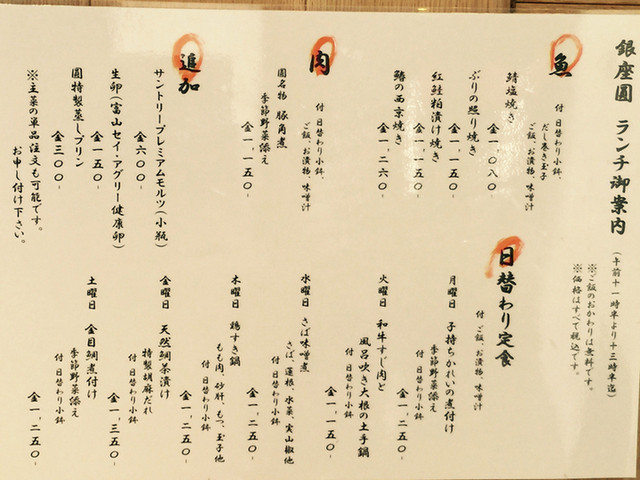 銀座圓 ランチ御案内
(午前十一時半より十三時半迄)
※ご飯のおかわりは無料です。
※価格はすべて税込です。
魚
付 日替わり小鉢、
だし巻き玉子
ご飯、お漬物、味噌汁
鯖塩焼き
金一、〇八〇-
ぶりの照り焼き
金一、一五〇-
紅鮭粕漬け焼き
金一、一五〇-
鰆の西京焼き
金一、二六〇-
肉
付 日替わり小鉢、
ご飯、お漬物、味噌汁
圓名物 豚角煮
季節野菜添え
金一、一五〇-
追加
サントリープレミアムモルツ(小瓶)
金六〇〇-
生卵(富山セイ・アグリー健康卵)
金一五〇-
圓特製蒸しプリン
金三〇〇-
※主菜の単品注文も可能です。
お申し付け下さい。
日替わり定食
付 ご飯、お漬物、味噌汁
月曜日 子持ちかれいの煮付け
季節野菜添え
付 日替わり小鉢
金一、二五〇-
火曜日 和牛すじ肉と
風呂吹き大根の土手鍋
付 日替わり小鉢
金一、二五〇-
水曜日 さば味噌煮
さば、蓮根、水菜、実山椒他
金一、二五〇-
木曜日 鶏すき鍋
もも肉、砂肝、もつ、玉子他
付 日替わり小鉢
金一、二五〇-
金曜日 天然鯛茶漬け
特製胡麻だれ
付 日替わり小鉢
金一、三五〇-
土曜日 金目鯛煮付け
季節野菜添え
付 日替わり小鉢
金一、二五〇-